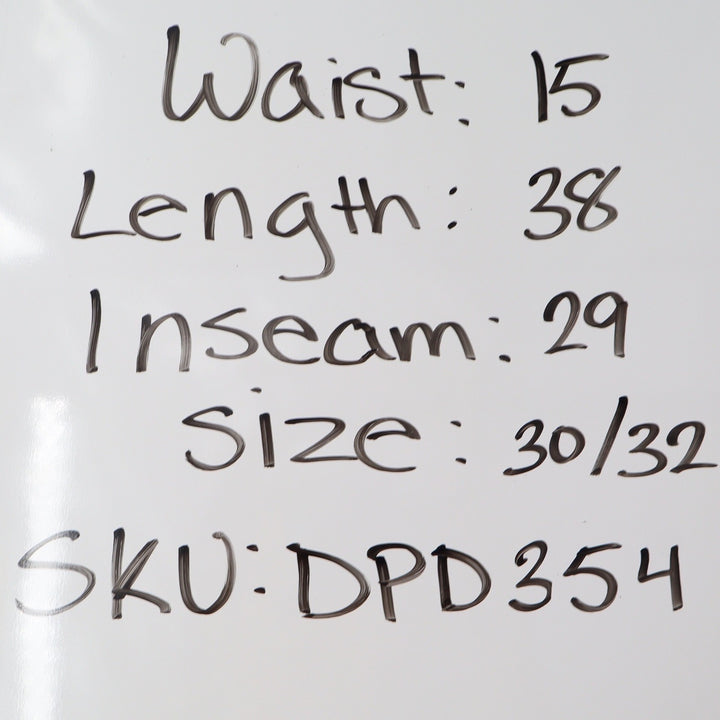 Waist: 15
Length: 38
Inseam: 29
Size: 30/32
SKU: DPD354